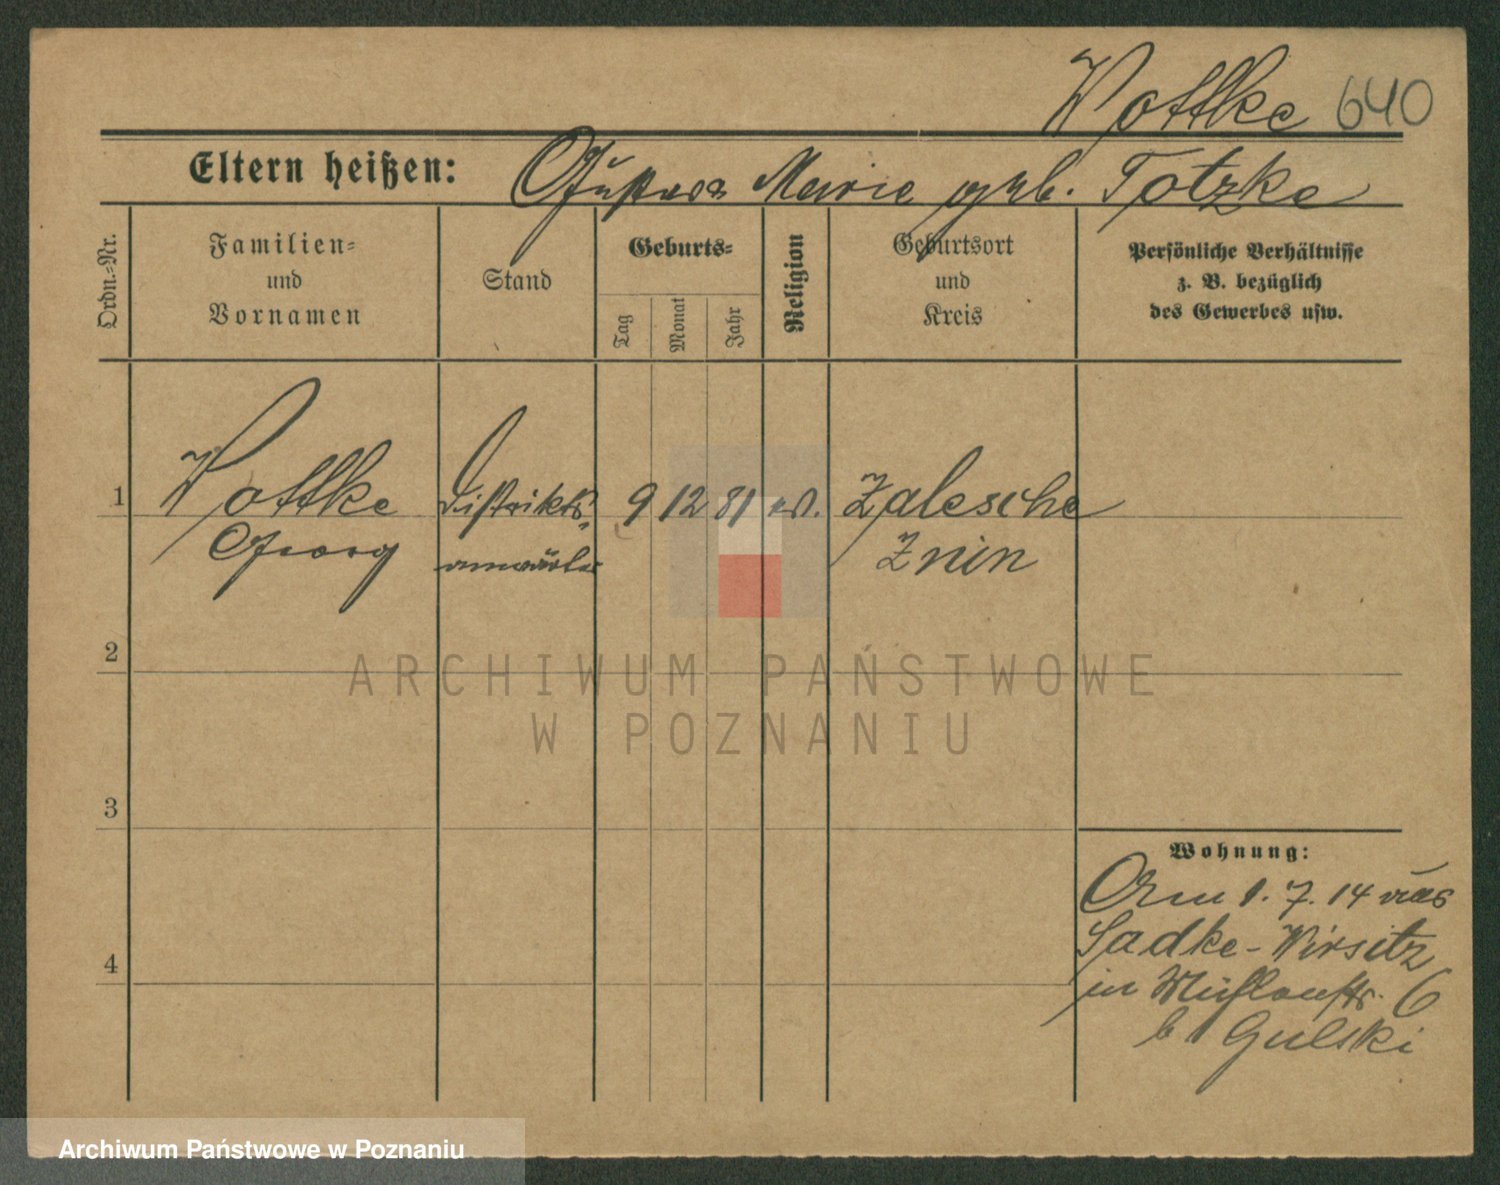 Wottke 640
Eltern heißen: Gustav Marie geb. Totzke
Ordn.-Nr.
Familien-
und
Vornamen
Stand
Geburts-
Tag
Monat
Jahr
Religion
Geburtsort
und
Kreis
Persönliche Verhältnisse
z. B. bezüglich
des Gewerbes usw.
1 Wottke Distrikts- 9 12 81 ev. Zalesche
Georg anwärter Znin
2
3
4
Wohnung:
Am 1. 7. 14 aus
Sadke-Wirsitz
in Mühlenstr. 6
b Gulski
ARCHIWUM PAŃSTWOWE
W POZNANIU
Archiwum Państwowe w Poznaniu